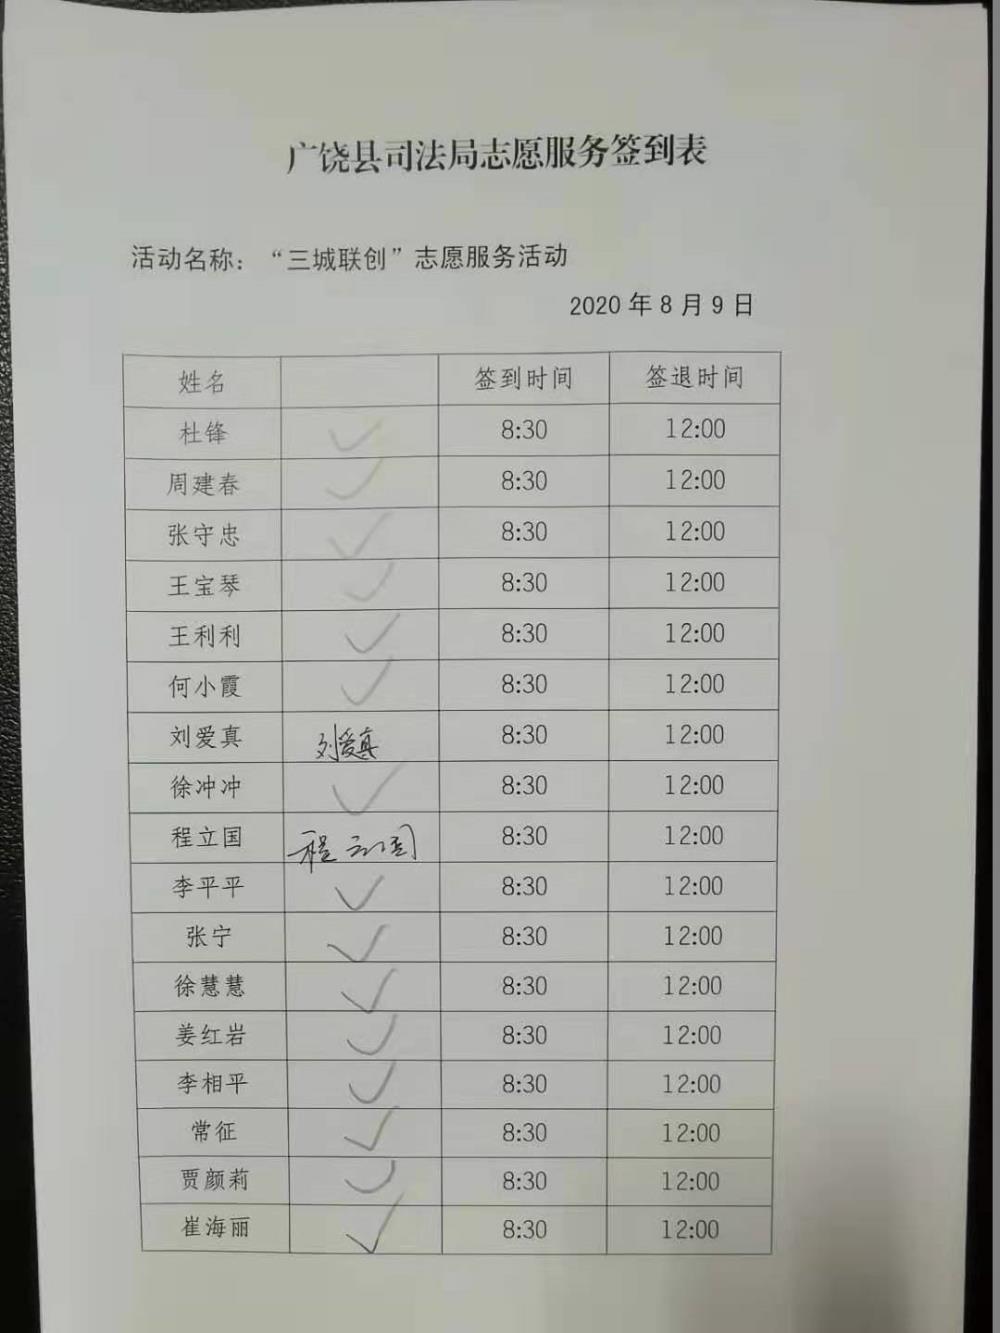 广饶县司法局志愿服务签到表
活动名称：“三城联创”志愿服务活动
2020 年 8 月 9 日
姓名 签到时间 签退时间
杜锋 ✓ 8:30 12:00
周建春 ✓ 8:30 12:00
张守忠 ✓ 8:30 12:00
王宝琴 ✓ 8:30 12:00
王利利 ✓ 8:30 12:00
何小霞 ✓ 8:30 12:00
刘爱真 刘爱真 8:30 12:00
徐冲冲 ✓ 8:30 12:00
程立国 程立国 8:30 12:00
李平平 ✓ 8:30 12:00
张宁 ✓ 8:30 12:00
徐慧慧 ✓ 8:30 12:00
姜红岩 ✓ 8:30 12:00
李相平 ✓ 8:30 12:00
常征 ✓ 8:30 12:00
贾颜莉 ✓ 8:30 12:00
崔海丽 ✓ 8:30 12:00